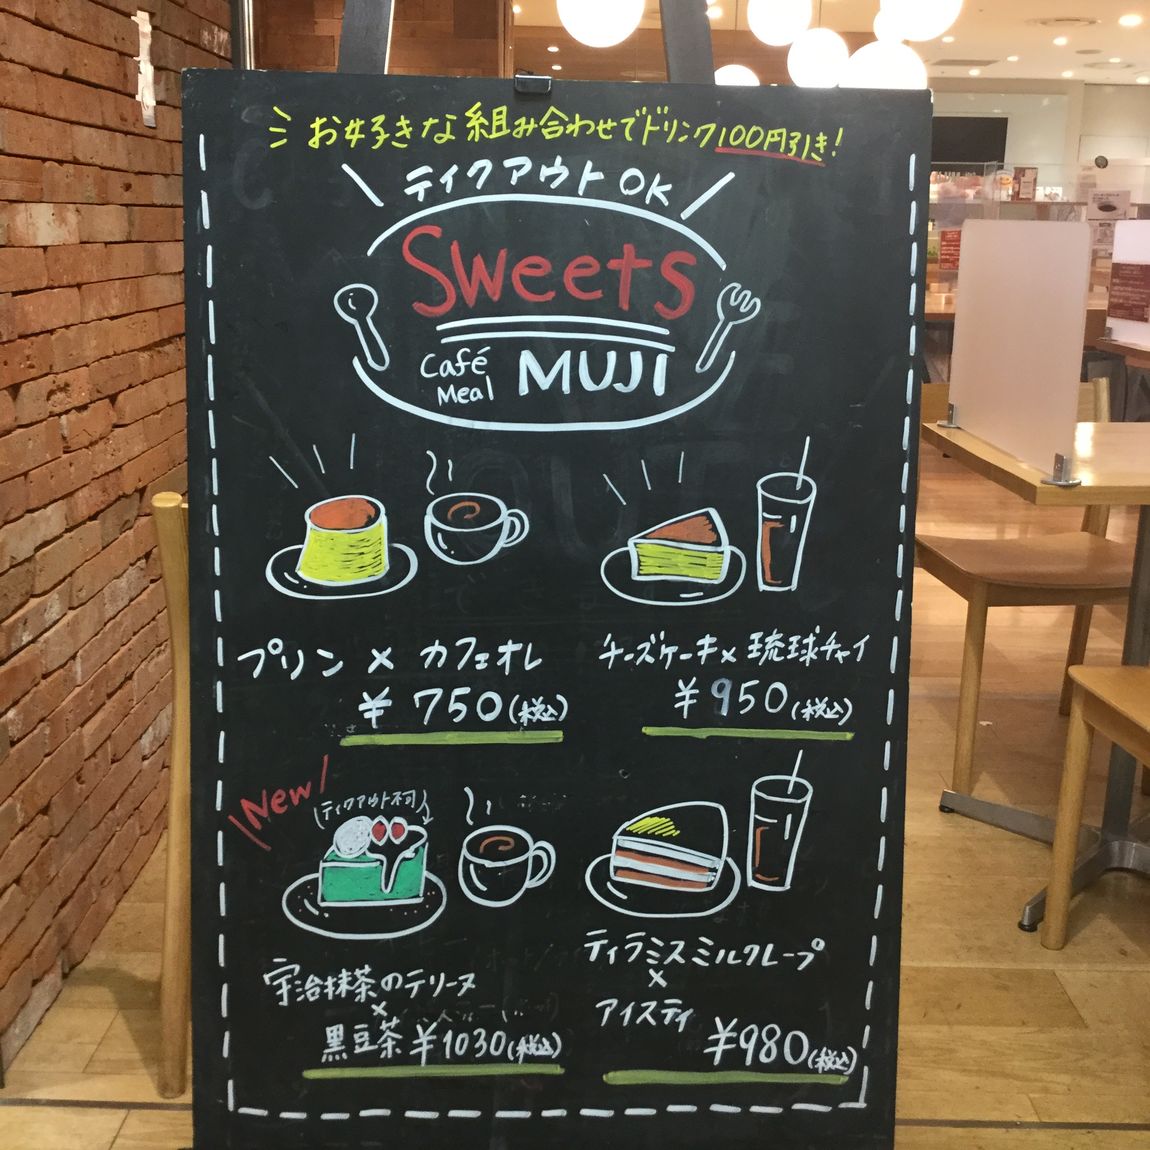 お好きな組み合わせでドリンク100円引き!
テイクアウト OK
Sweets
Café
Meal
MUJI
プリン × カフェオレ
¥750(税込)
チーズケーキ×琉球チャイ
¥950(税込)
New
(テイクアウト不可)
宇治抹茶のテリーヌ
×
黒豆茶 ¥1030(税込)
ティラミスミルクレープ
×
アイスティ
¥980(税込)